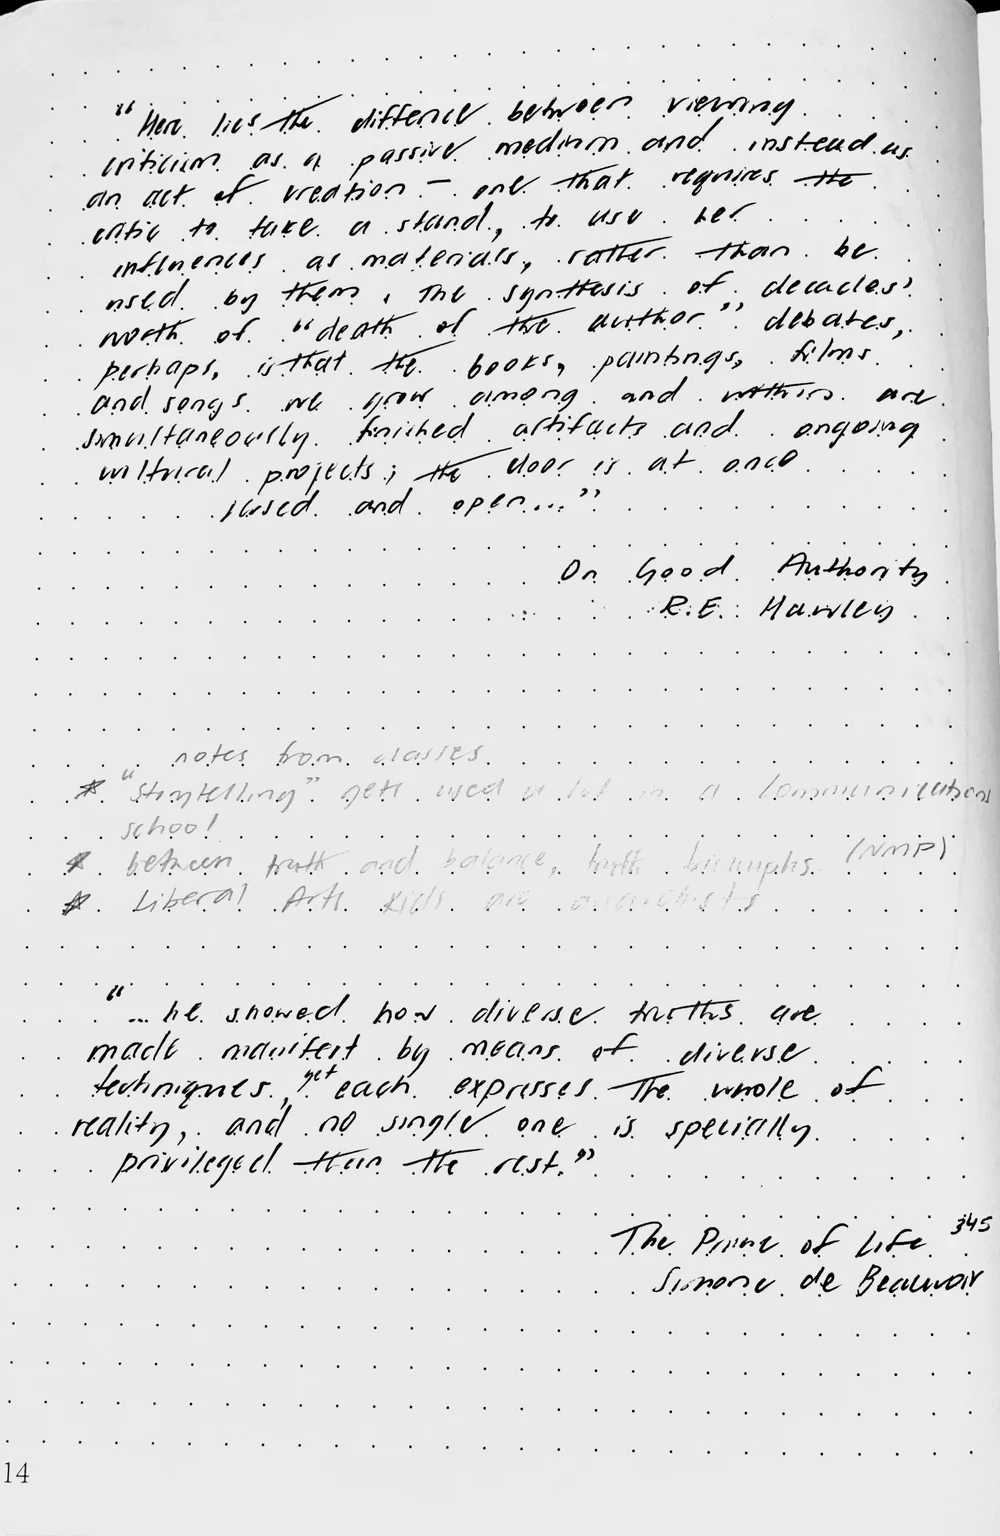 "Here lies the diffence between viewing
criticism as a passive medium and instead as
an act of creation – one that requires the
critic to take a stand, to use her
influences as materials, rather than be
used by them. The synthesis of decades'
worth of "death of the author" debates,
perhaps, is that the books, paintings, films
and songs we grow among and within are
simultaneously finished artifacts and ongoing
cultural projects; the door is at once
closed and open..."
On Good Authority
R.E. Hawley
notes from classes
* "Storytelling" gets used a lot in a Communications
school
* between truth and balance, truth triumphs (NMP)
* Liberal Arts kids are anarchists
"... he showed how diverse truths are
made manifest by means of diverse
techniques, yet each expresses the whole of
reality, and no single one is specially
privileged than the rest."
The Prime of Life 345
Simone de Beauvoir
14